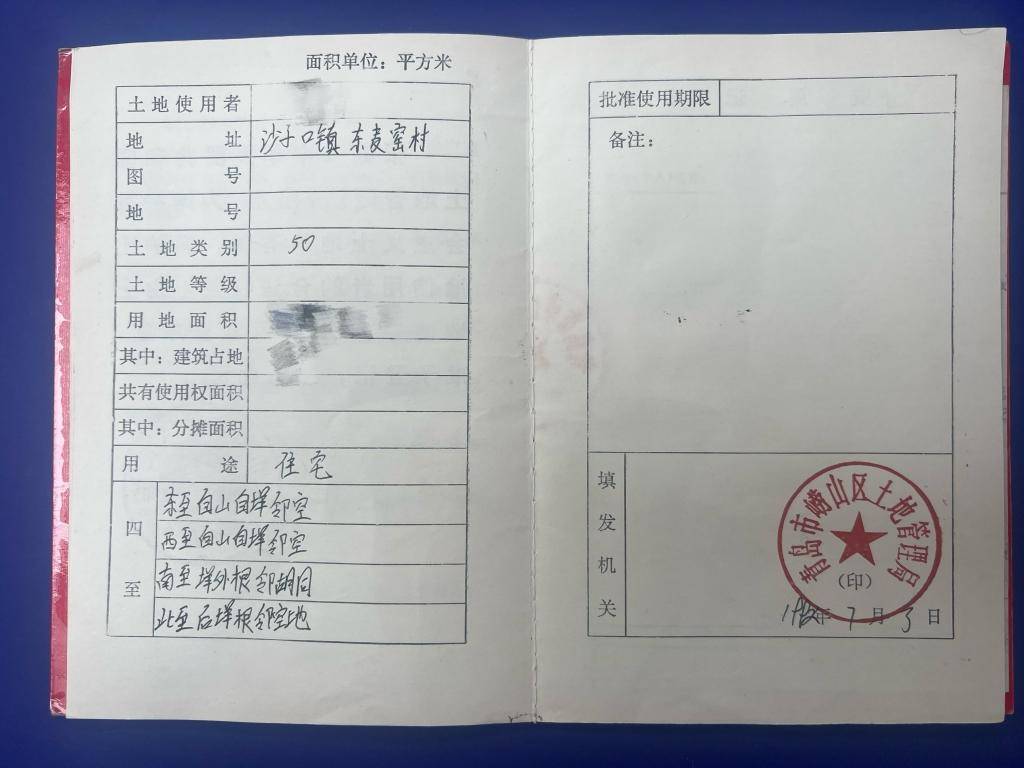 面积单位：平方米
土地使用者
地址 沙子口镇东麦窑村
图号
地号
土地类别 50
土地等级
用地面积
其中：建筑占地
共有使用权面积
其中：分摊面积
用途 住宅
四至
东至自山自垟邻空
西至自山自垟邻空
南至垟外根邻胡同
北至后垟根邻空地
批准使用期限
备注：
填发机关
青岛市崂山区土地管理局
（印）
年7月3日